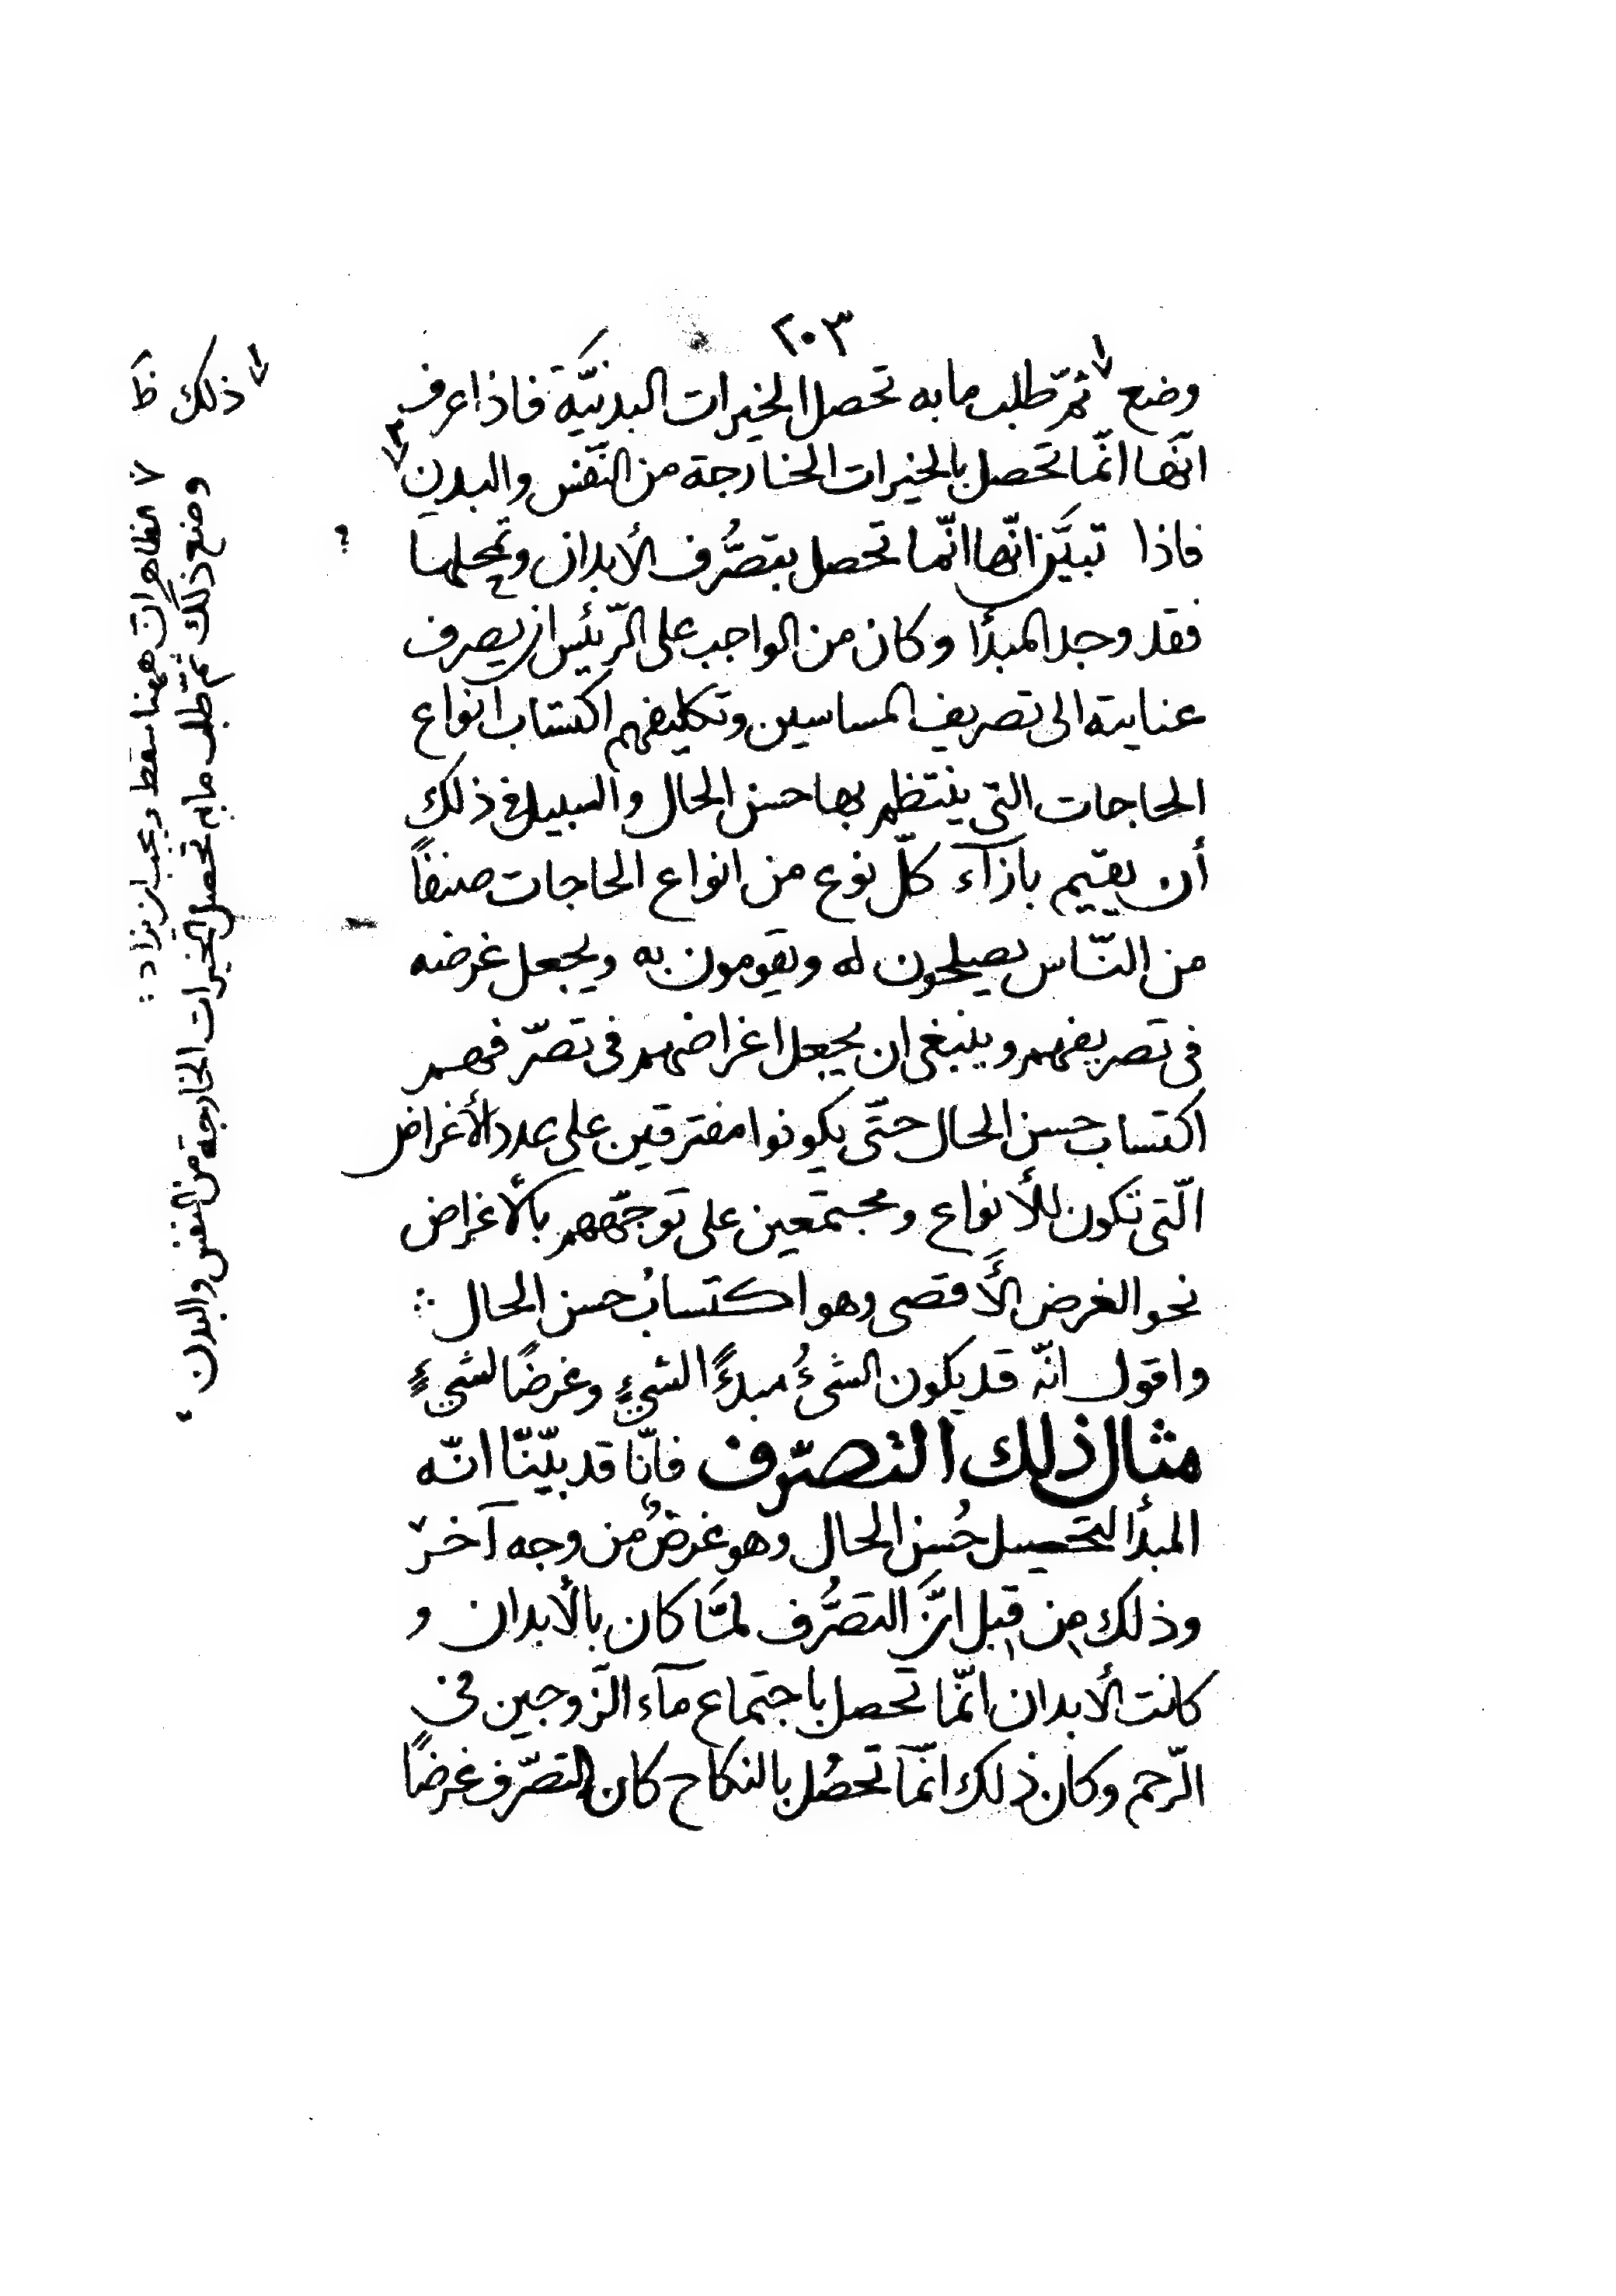 ٢٠٣
وضع ثمّ طلب ما به تحصل الخيرات البدنيَّة فاذا عرف
انّها انّما تحصل بالخيرات الخارجة من النّفس والبدن
فاذا تبيَّن انّها انّما تحصل بتصرُّف الأبدان وتمحلها
فقد وجد المبدأ وكان من الواجب على الرّئيس ان يصرف
عنايته الى تصريف المساسين وتكليفهم اكتساب انواع
الحاجات التى ينتظم بها حسن الحال والسبيل فى ذلك
أن يقيم بازآء كلّ نوع من انواع الحاجات صنفًا
من النّاس يصلحون له ويقومون به ويجعل غرضه
فى تصريفهم وينبغى ان يجعل اغراضهم فى تصرّفهم
اكتساب حسن الحال حتّى يكونوا مفترقين على عدد الأغراض
الّتى تكون للأنواع ومجتمعين على توجّههم بالأغراض
نحو الغرض الأقصى وهو اكتسابُ حسن الحال ∴
واقول انّه قد يكون الشىءُ مبدءًا لشيءٍ وغرضًا لشيءٍ
مثال ذلك التصرّف فانّا قد بيّنّا انّه
المبدأ لتحصيل حُسن الحال وهو غرضٌ من وجه آخر
وذلك من قِبل انَّ التصرُّف لمّا كان بالأبدان و
كانت الأبدان انّما تحصل باجتماع مآء الزّوجين فى
الرّحم وكان ذلك انّما تحصُل بالنكاح كان التصرّف غرضًا
١ ذلك ظ
٢ الظاهر ان ههنا سقط ويجب ان يزاد :
وضع ذلك ثم طلب ما به تحصل الخيرات الخارجة من النفس والبدن ،
؟